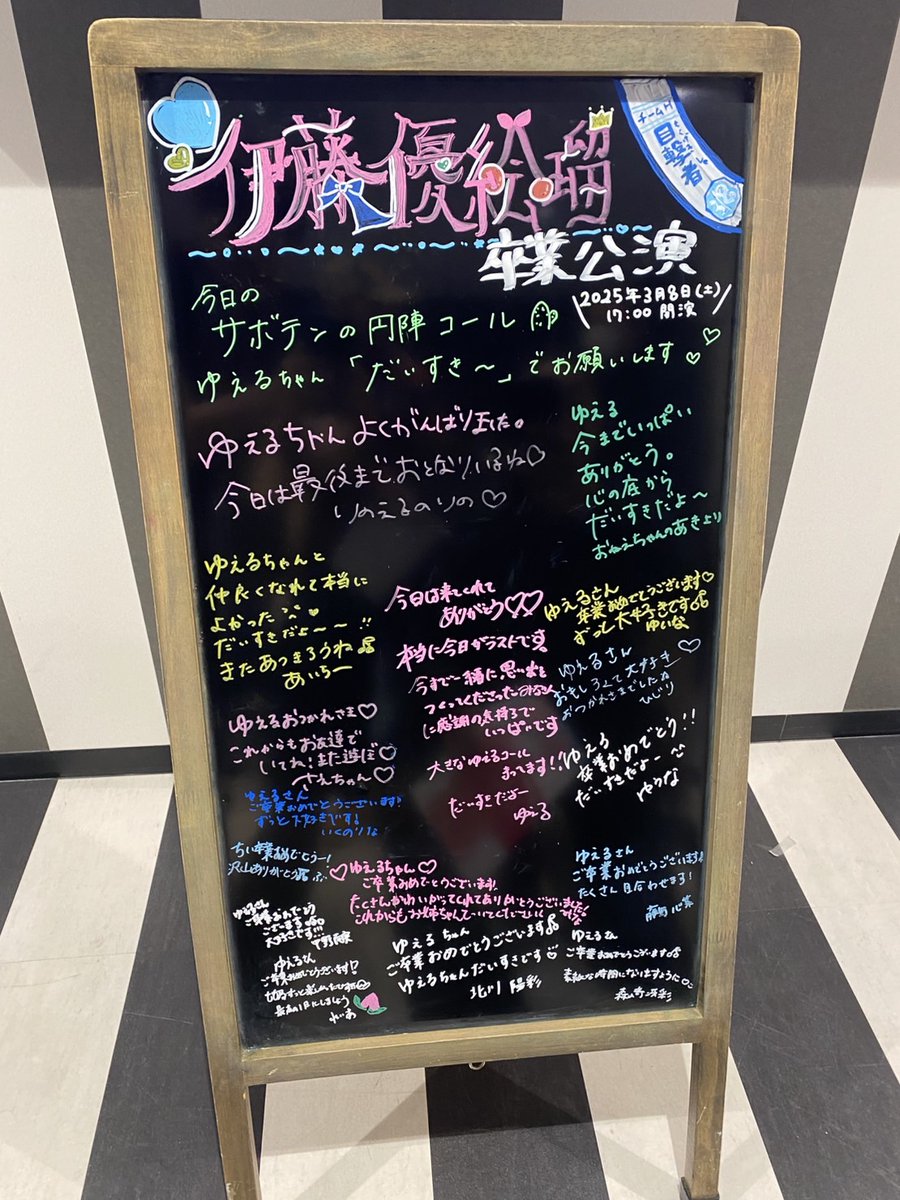 伊藤優絵瑠
チームH
目撃者
卒業公演
2025年3月8日(土)
17:00 開演
今日の
サボテンの円陣コール
ゆえるちゃん「だいすき〜」でお願いします♡
ゆえるちゃんよくがんばりました。
今日は最後までおとなりいるね♡
りのえるのりの♡
ゆえる
今までいっぱい
ありがとう。
心の底から
だいすきだよ〜
おねえちゃんのあきより
ゆえるちゃんと
仲良くなれて本当に
よかった
だいすきだよ〜〜!!
またあつまろうね
あいちー
今日は来てくれて
ありがとう♡♡
本当に今日がラストです
今まで一緒に思い出を
つくってくださったみなさん
に感謝の気持ちで
いっぱいです
大きなゆえるコール
まってます!!
だいすきだよー
ゆえる
ゆえるさん
卒業おめでとうございます♡
ずっと大好きです
ゆいな
ゆえるさん♡
おもしろくて大好き
おつかれさまでした
ひじり
ゆえる
卒業おめでとう!!
だいすきだよー
ゆうな
ゆえるおつかれさま♡
これからもお友達で
いてね!また遊ぼ♡
さえちゃん♡
ゆえるさん
ご卒業おめでとうございます!
ずっと大好きです!
いくのりな
卒業おめでとうー!
沢山ありがとう
♡ゆえるちゃん♡
ご卒業おめでとうございます!
たくさんかわいがってくれてありがとうございました
これからもお姉ちゃんで
ゆえるさん
ご卒業おめでとうございます!
たくさん目合わせます!
ゆえるさん
ご卒業おめでとう
ございます
大好きです!!!
ゆえるさん
ご卒業おめでとうございます!
最高の1日にしましょう
れいあ
ゆえるちゃん
ご卒業おめでとうございます
ゆえるちゃんだいすきです♡
北川陽彩
ゆえるさん
ご卒業おめでとうございます
素敵な時間になりますように